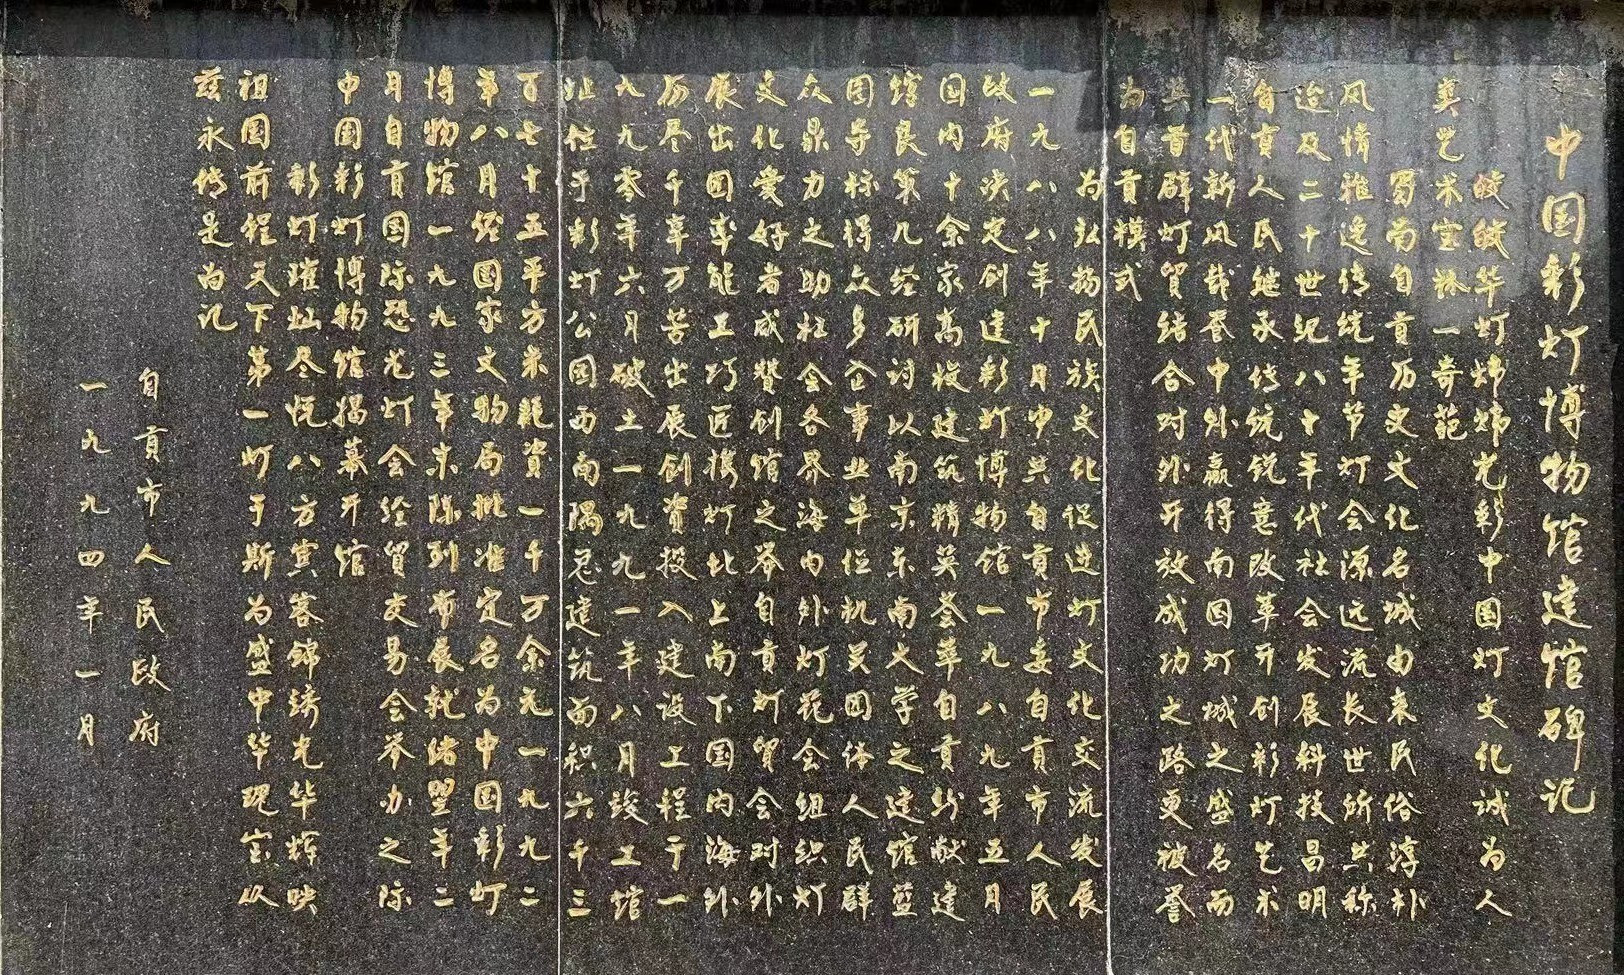 中国彩灯博物馆建馆碑记
皎皎华灯炜炜光彩中国灯文化诚为人
类艺术宝林一奇葩
蜀南自贡历史文化名城由来民俗淳朴
风情雅逸传统年节灯会源远流长世所共称
迨及二十世纪八十年代社会发展科技昌明
自贡人民继承传统锐意改革开创彩灯艺术
一代新风载誉中外赢得南国灯城之盛名而
其首辟灯贸结合对外开放成功之路更被誉
为自贡模式
为弘扬民族文化促进灯文化交流发展
一九八八年十月中共自贡市委自贡市人民
政府决定创建彩灯博物馆一九八九年五月
国内十余家高校建筑精英荟萃自贡纷献建
馆良策几经研讨以南京东南大学之建馆蓝
图夺标得众多企事业单位机关团体人民群
众鼎力之助社会各界海内外灯苑会组织灯
文化爱好者成赞创馆之举自贡灯贸会对外
展出团率能工巧匠携灯北上南下国内海外
历尽千辛万苦出展创资投入建设工程于一
九九零年六月破土一九九一年八月竣工馆
址位于彩灯公园西南隅总建筑面积六千三
百七十五平方米耗资一千万余元一九九二
年八月经国家文物局批准定名为中国彩灯
博物馆一九九三年末陈列布展就绪翌年二
月自贡国际恐龙灯会经贸交易会举办之际
中国彩灯博物馆揭幕开馆
彩灯璀灿尽悦八方宾客锦绣光华辉映
祖国前程天下第一灯于斯为盛中华瑰宝从
兹永传是为记
自贡市人民政府
一九九四年一月